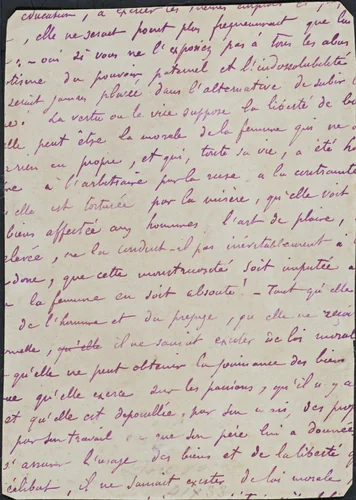 éducation, à exercer les mêmes emplois et
, elle ne serait point plus fréquemment que lui
? — oui si vous ne l'exposez pas à tous les abus
otisme du pouvoir paternel et l'indissolubilité
serait jamais placée dans l'alternative de subir
La vertu ou le vice suppose la liberté de
elle peut être la morale de la femme qui ne
rien en propre, et qui, toute sa vie, a été
à l'arbitraire par la ruse à la contrainte
elle est torturée par la misère, qu'elle voit
biens affectée aux hommes l'art de plaire,
élevée, ne la conduit-il pas inévitablement à
donc, que cette monstruosité soit imputée à
la femme en soit absoute! — Tant qu'elle
de l'homme et du préjugé, qu'elle ne reçoit
onnelle, qu'elle il ne saurait exister de loi morale
qu'elle ne peut obtenir la jouissance des biens
ce qu'elle exerce sur les passions, qu'il y a
et qu'elle est dépouillée, par son mari, des
par son travail que son père lui a donnés
s'assurer l'usage des biens et de la liberté
célibat, il ne saurait exister de loi morale